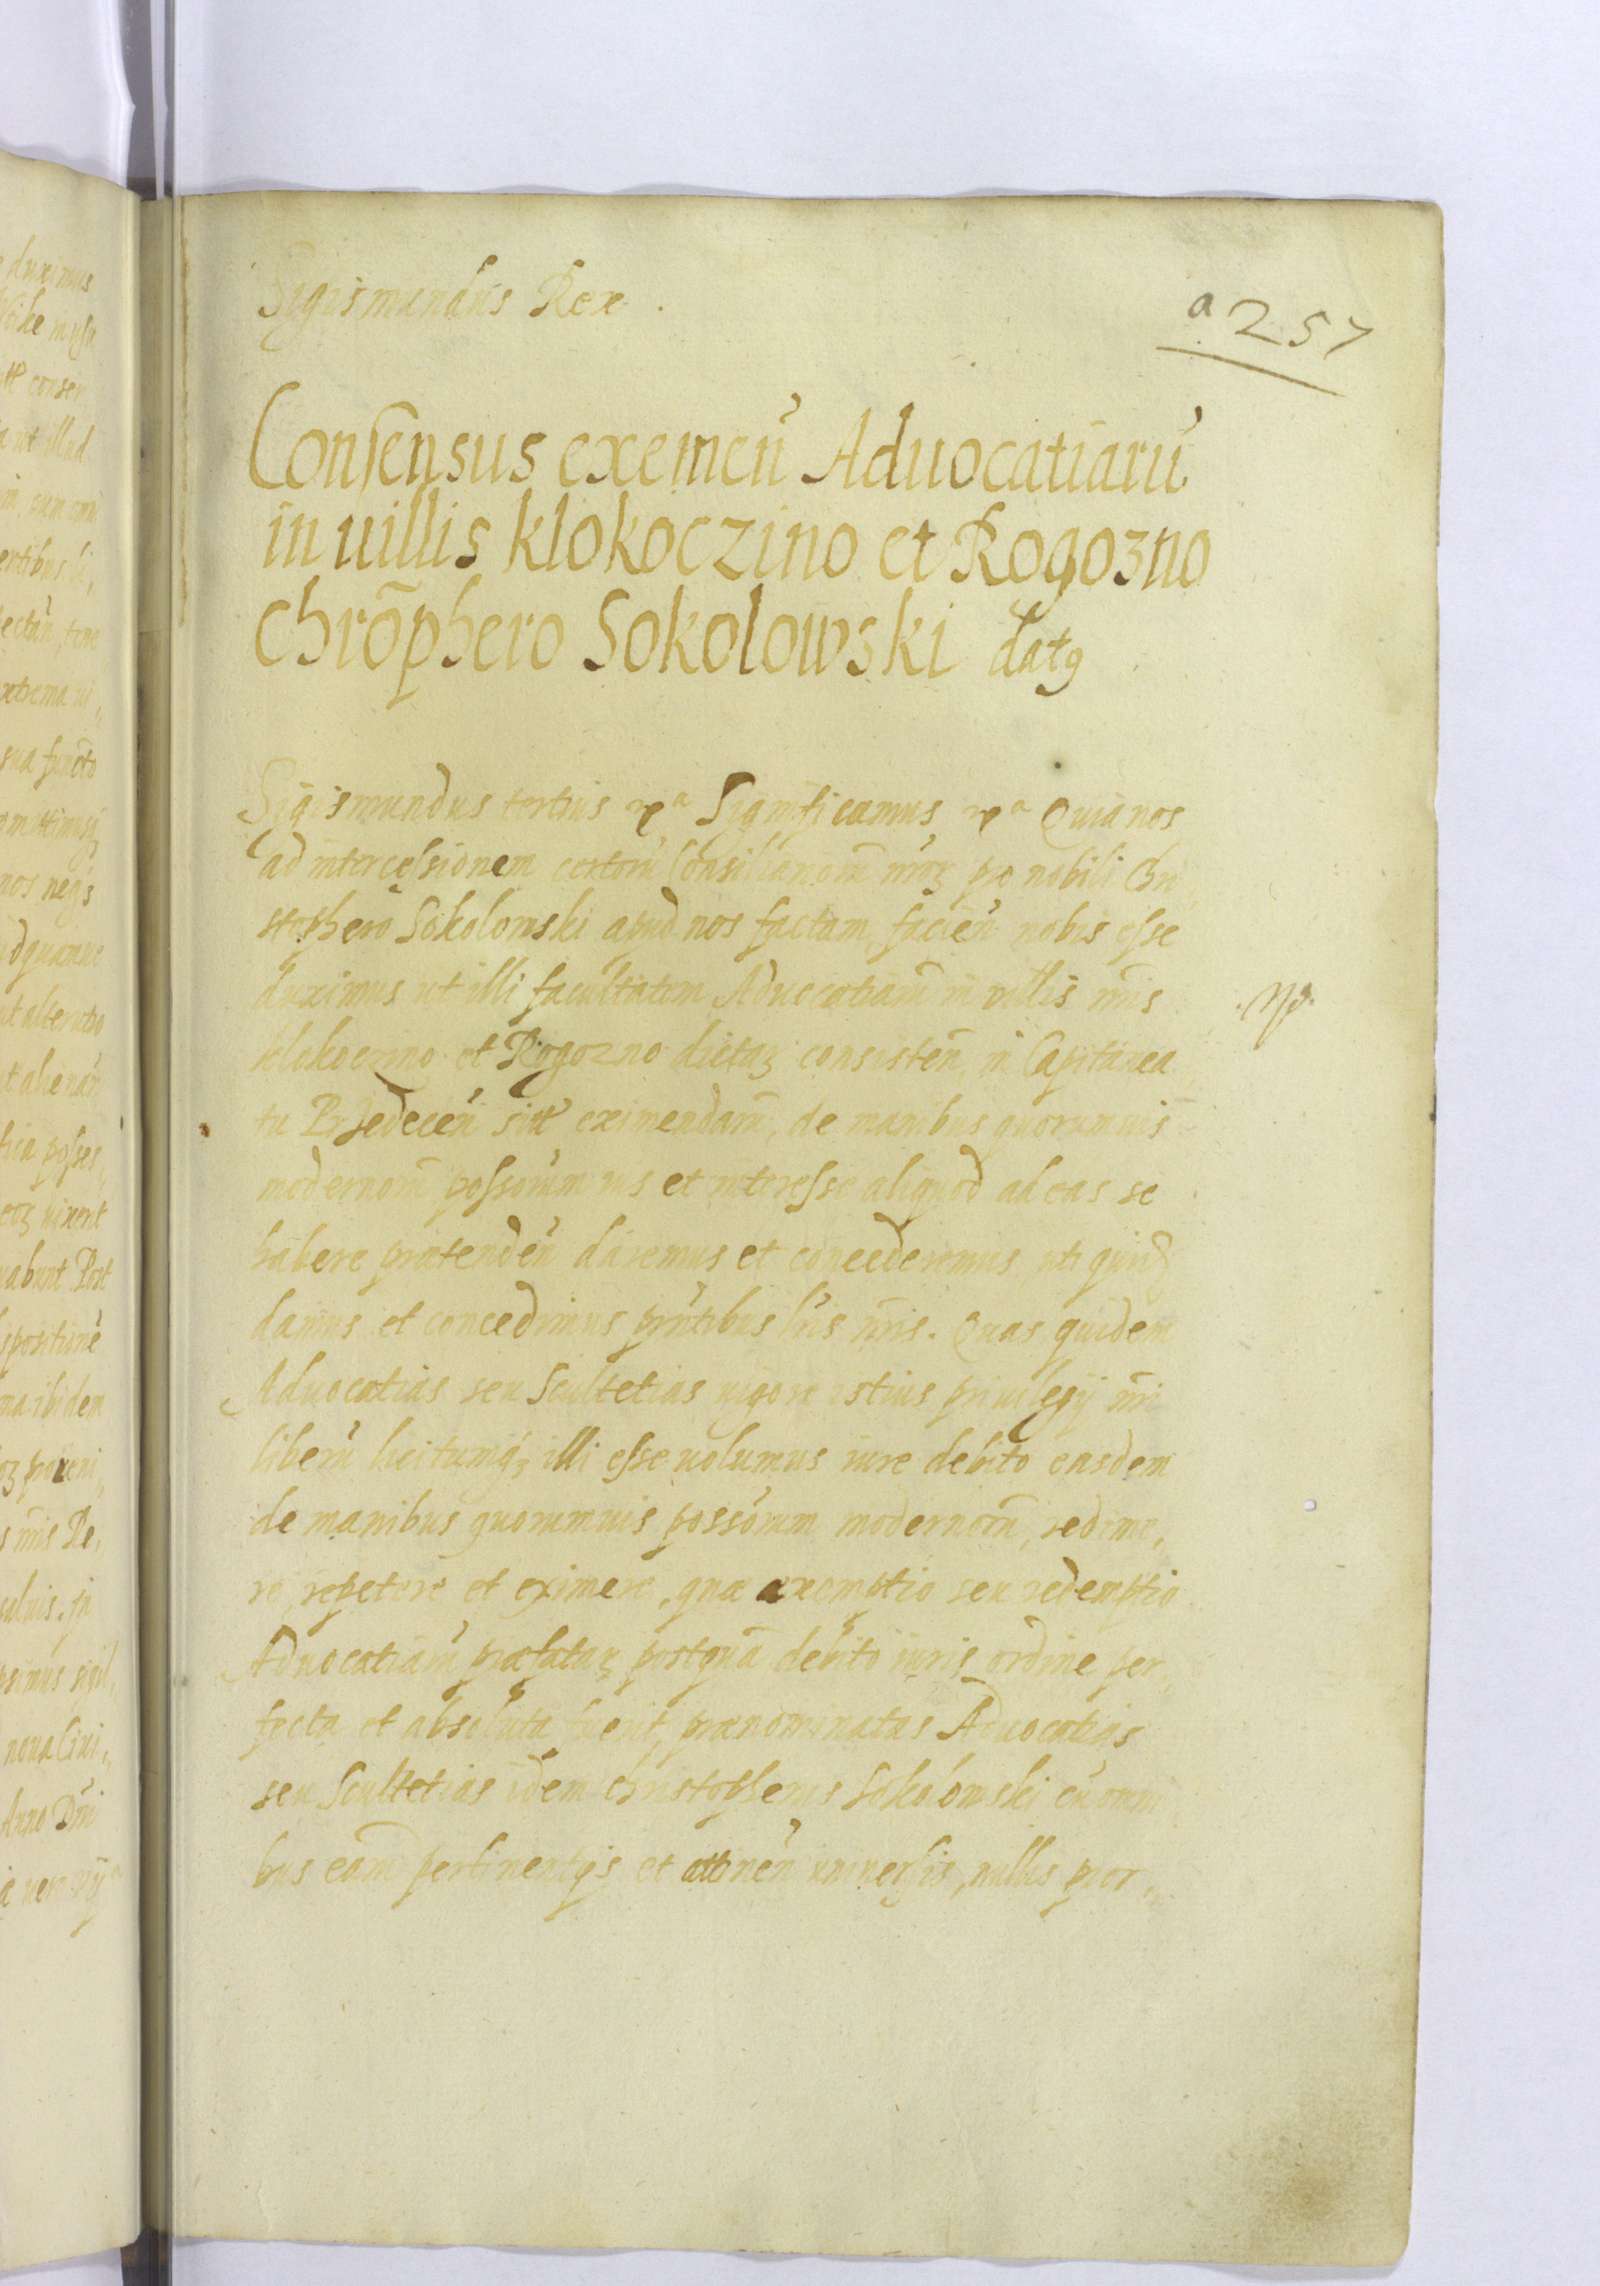 Sigismundus Rex.
a 257
Consensus eximeñ Aduocatiarũ
in uillis klokoczino et Rogozno
Chrõphero Sokolowski datꝯ
Sigismundus tertius Significamus Quia nos
ad intercessionem certorũ Consiliariorũ nroꝝ pro nobili Chri
stophero Sokolowski apud nos factam, facieñ nobis esse
duximus ut illi facultatem Aduocatiarũ in villis nris
klokoczino et Rogozno dictaꝝ consisteñ in Capitanea
tu Przedeceñ eximendarũ, de manibus quorumuis
modernorũ possorum ius et interesse aliquod ad eas se
habere pretendeñ daremus et concederemus uti quidẽ
damus et concedimus pñtibus lris nris. Quas quidem
Aduocatias seu Scultetias uigore istius priuilegij nri
liberũ licitumqꝫ illi esse uolumus iure debito easdem
de manibus quorumuis possorum modernorũ, redime,
re, repetere et eximere, quæ exemptio seu redemptio
Aduocatiarũ præfataꝝ postquã debito iuris ordine per,
fecta et absoluta fuerit, prænominatas Aduocatias
seu Scultetias idem Christopherus Sokolowski cũ omni
bus earũ pertinentijs et attineñ uniuersis, nullis pror,,
duximus
conser
ut illud
extrema ui,
sua functo
nos neqꝫ
idquamue
posses,
uixerit
uabunt Post
ibidem
nris Re,
sigil,
Anno Dñi